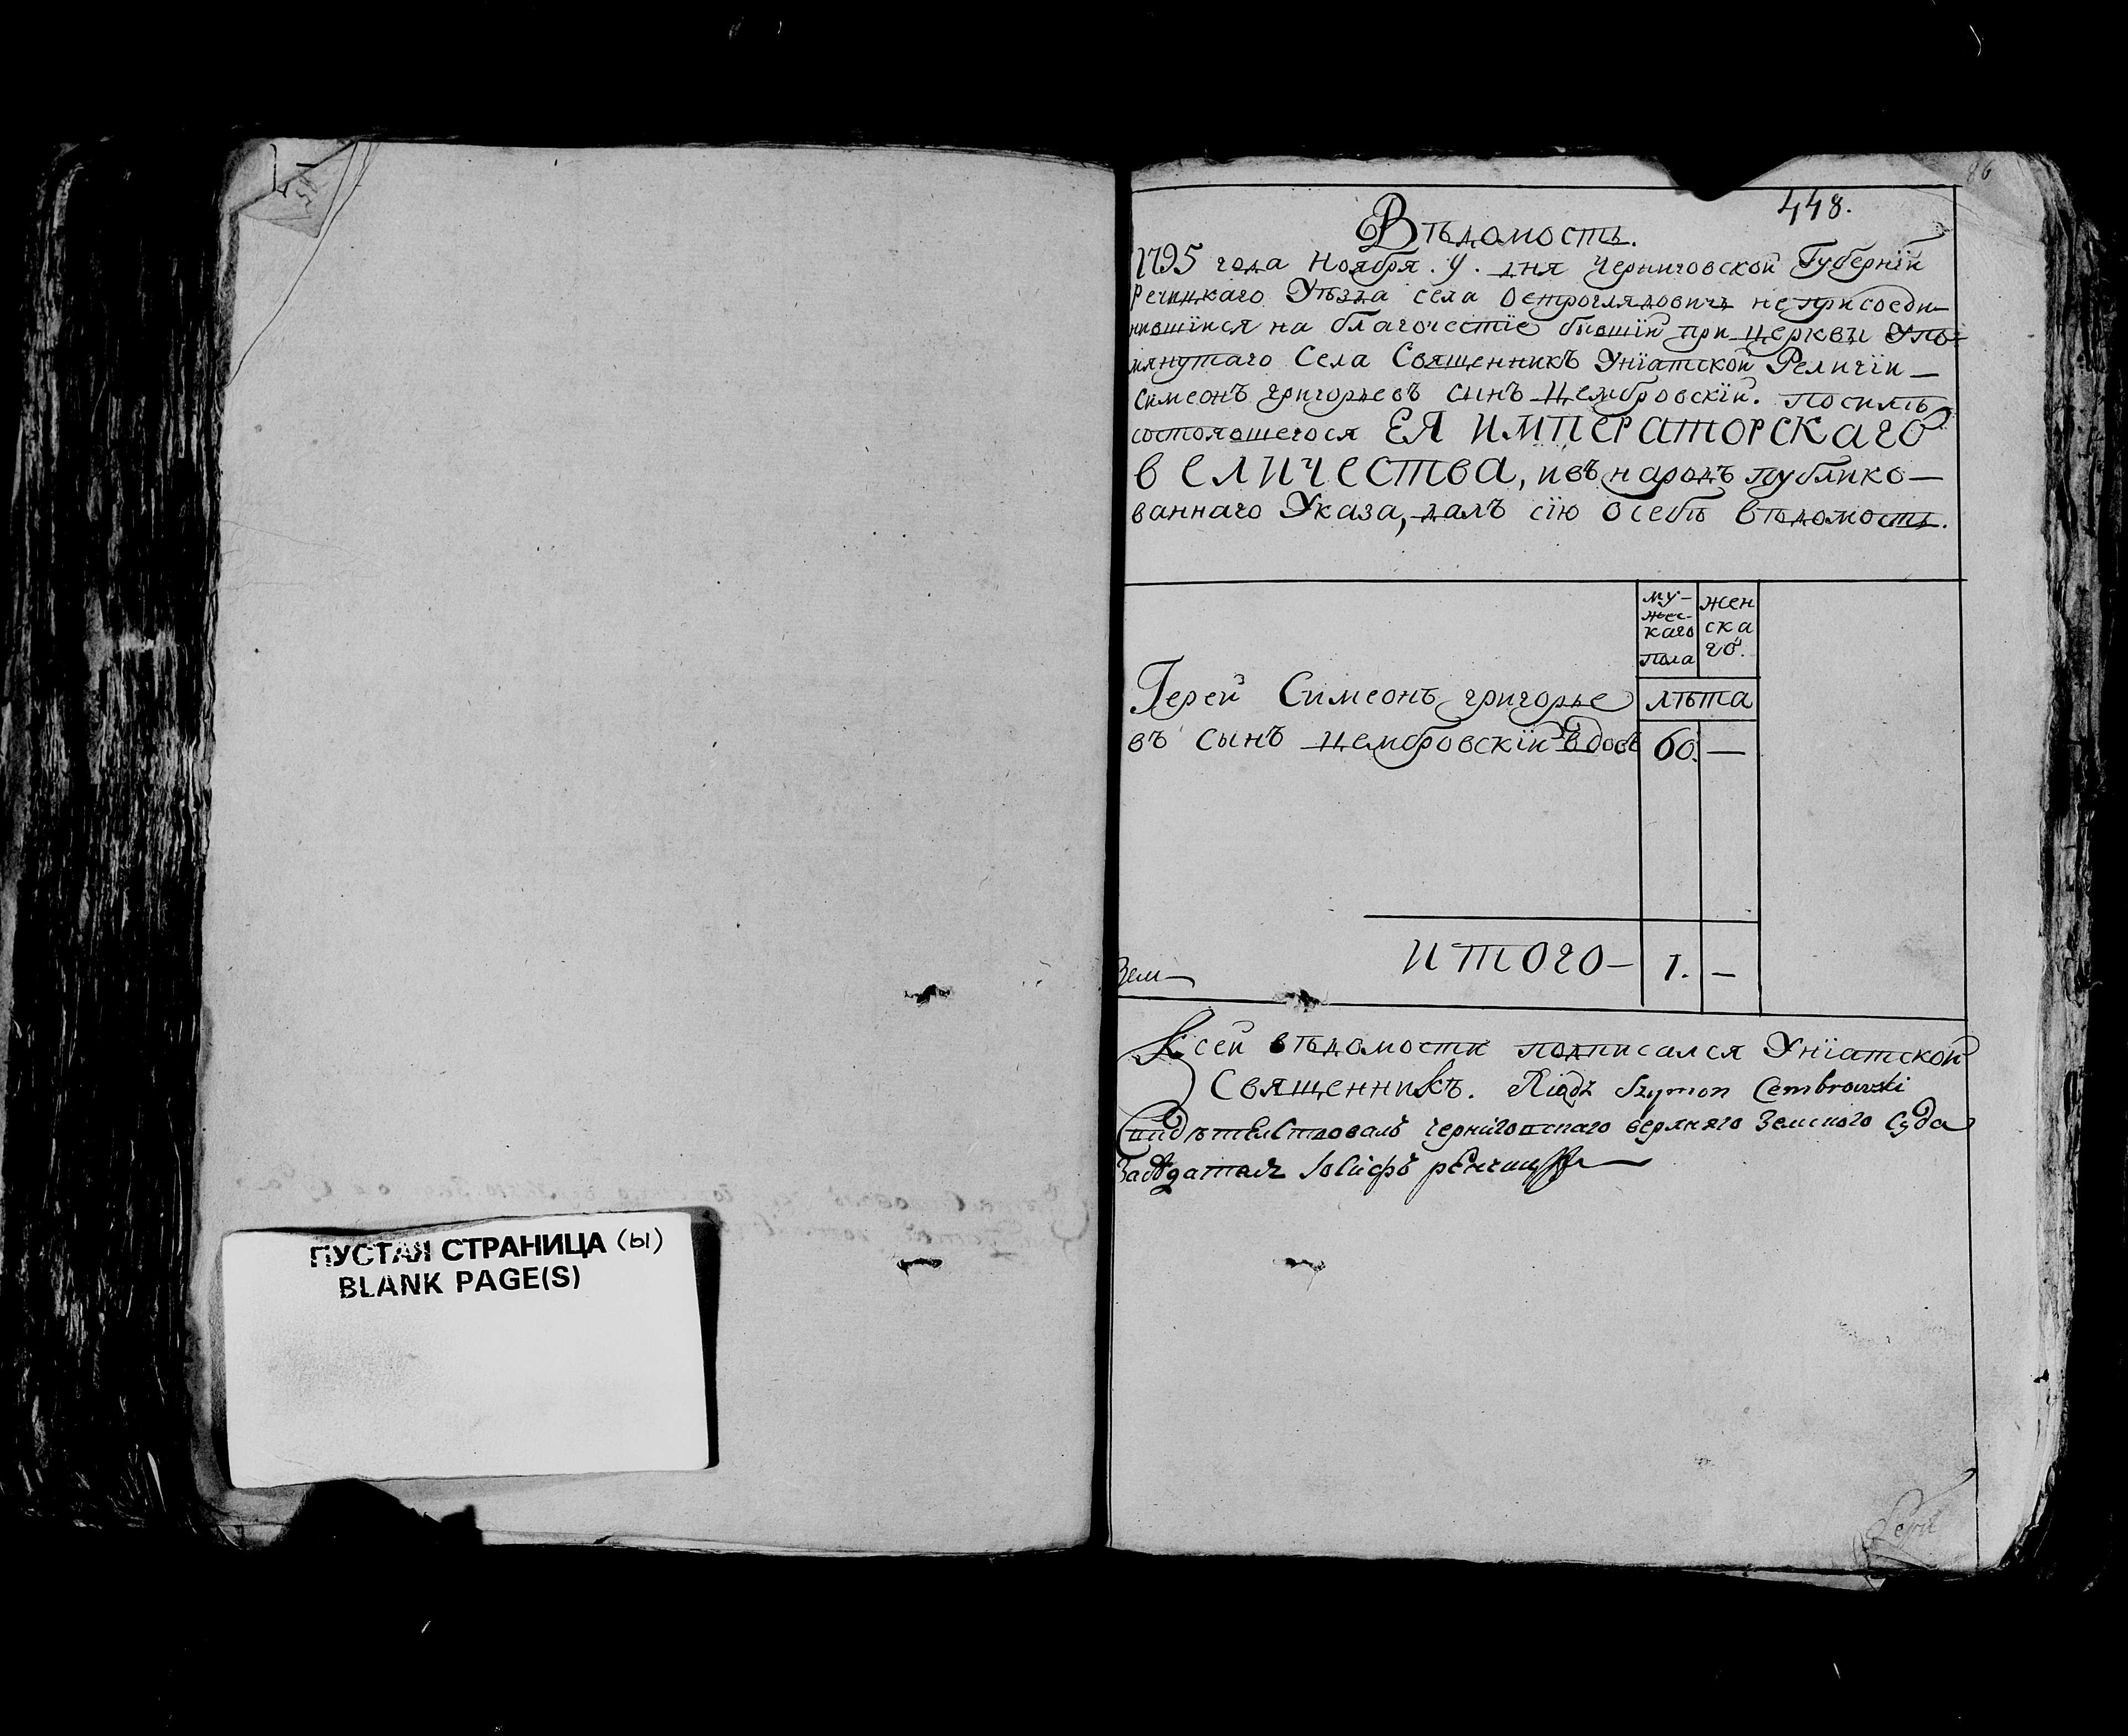 ПУСТАЯ СТРАНИЦА (ы)
BLANK PAGE(S)
86
448.
Вѣдомость.
1795 года Ноября . 9 . дня Черниговской Губернїй
Речицкаго Уѣзда села Остроглядовичъ неприсоеди-
нившїися на благочестїе бывшїй при церкви Упо-
мянутаго Села Священникъ Унїатской Религїи —
Симеонъ григорьевъ сынъ Цембровскїй. посилѣ
состоявшегося ЕЯ ИМПЕРАТОРСКАГО
ВЕЛИЧЕСТВА, ивъ народъ публико—
ваннаго Указа, далъ сїю осебѣ вѣдомость.
му-
жес-
каго
пола
жен
ска
го.
Герей Симеонъ григорье
лѣта
въ сынъ цембровскїй вдовъ
60.
—
Зем—
итого—
1.
—
Ксей вѣдомости подписался Унїатской
Священникъ. Xiądz Szymon Cembrowski
Свидѣтелствовалъ черниговскаго верхняго Земского Суда
Заседатель Іосифъ